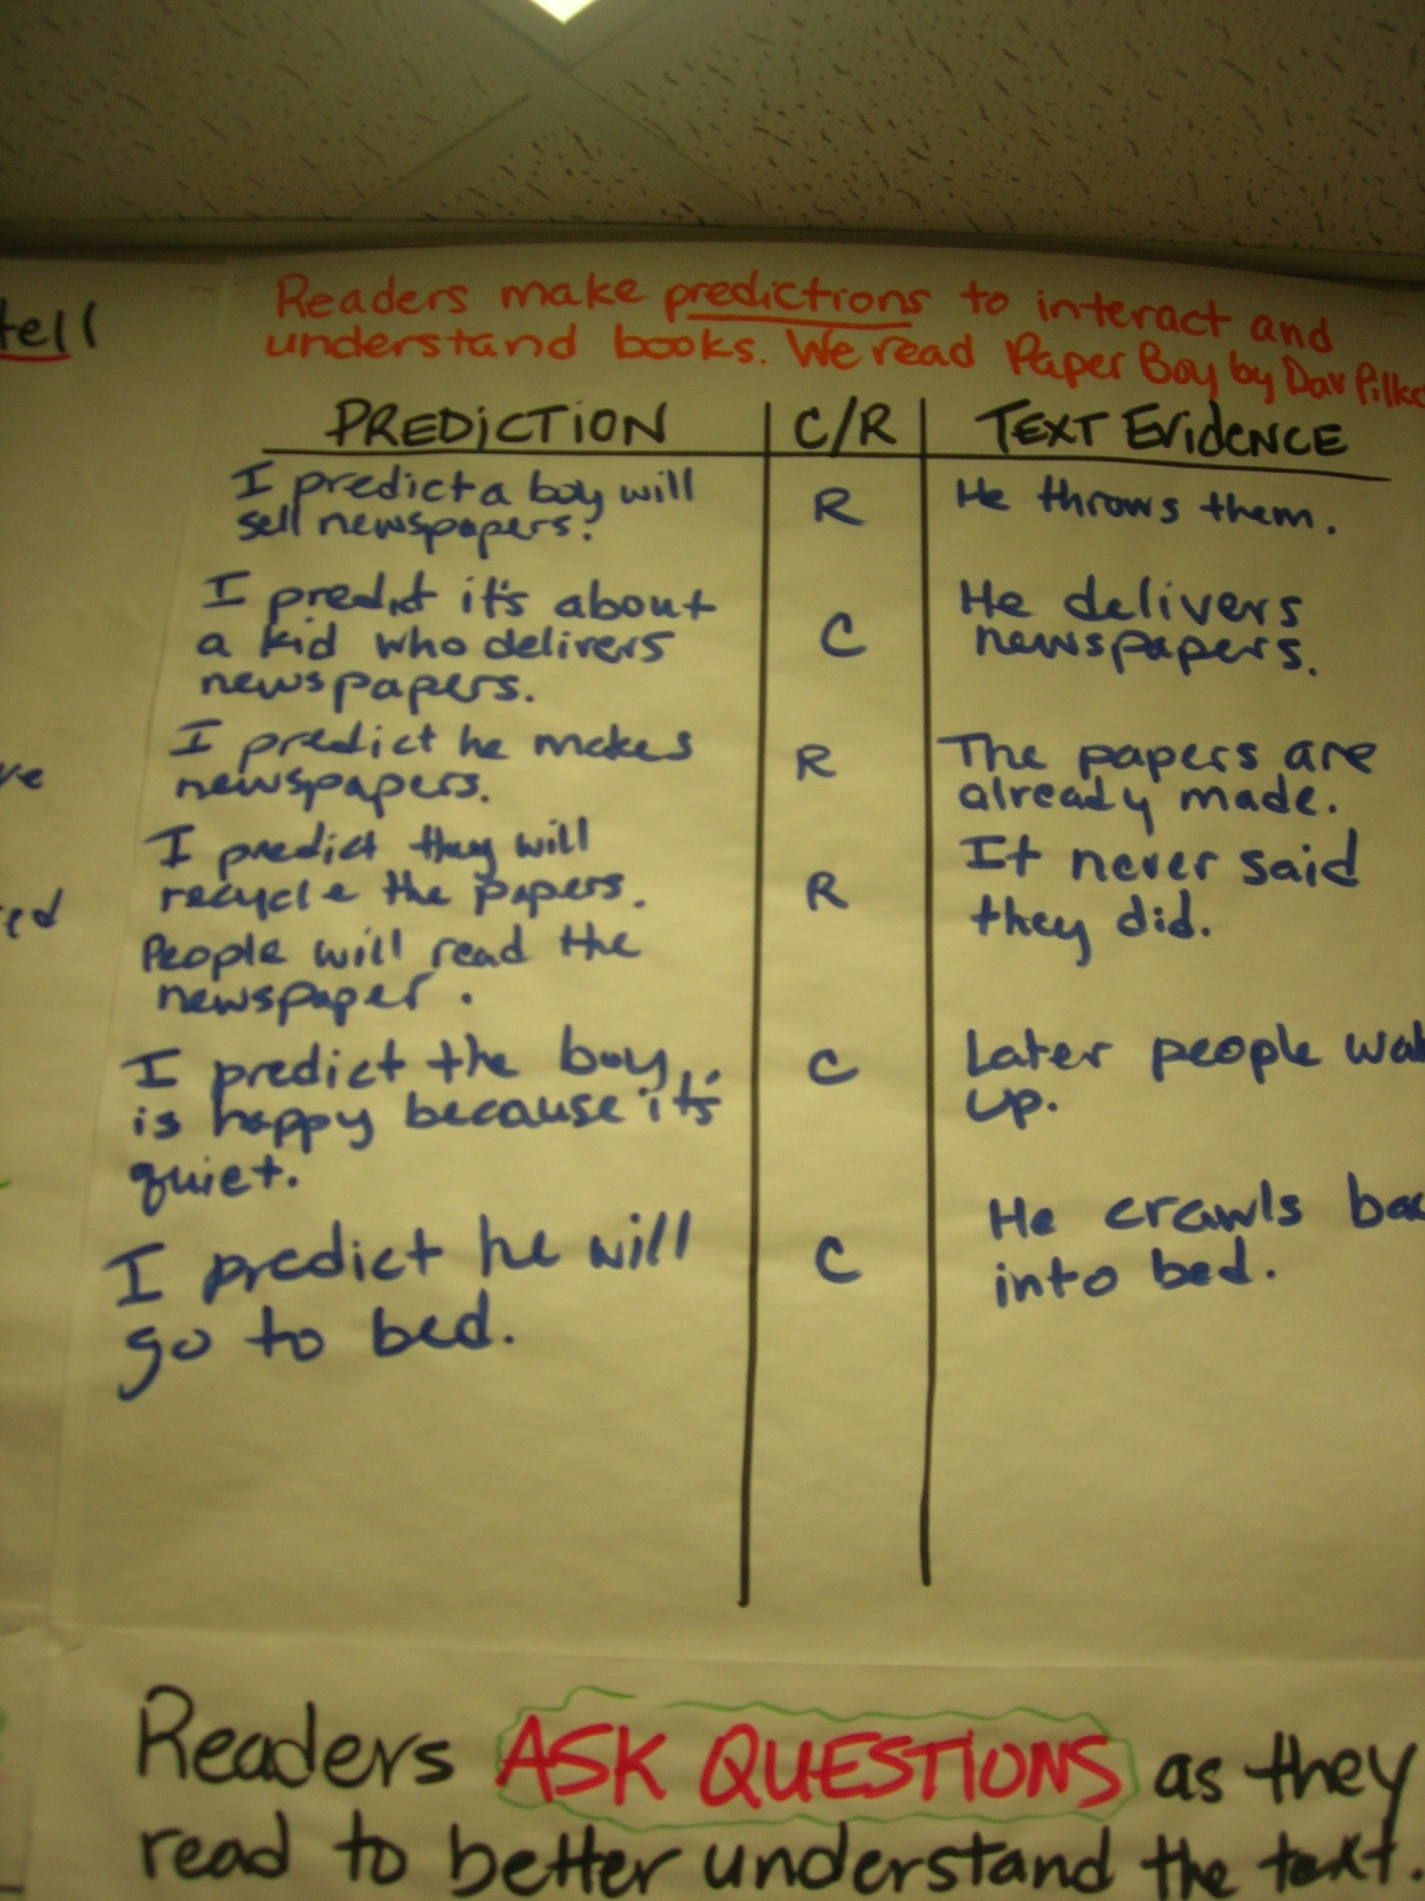 tell
Readers make predictions to interact and
understand books. We read Paper Boy by Dav
PREDICTION C/R TEXT EVIDENCE
I predict a boy will
sell newspapers.
R
He throws them.
I predict it's about
a kid who delivers
newspapers.
C
He delivers
newspapers.
I predict he makes
newspapers.
R
The papers are
already made.
I predict they will
recycle the papers.
R
It never said
they did.
People will read the
newspaper.
I predict the boy
is happy because it's
quiet.
C
Later people
up.
I predict he will
go to bed.
C
He crawls
into bed.
Readers ASK QUESTIONS as they
read to better understand the text.